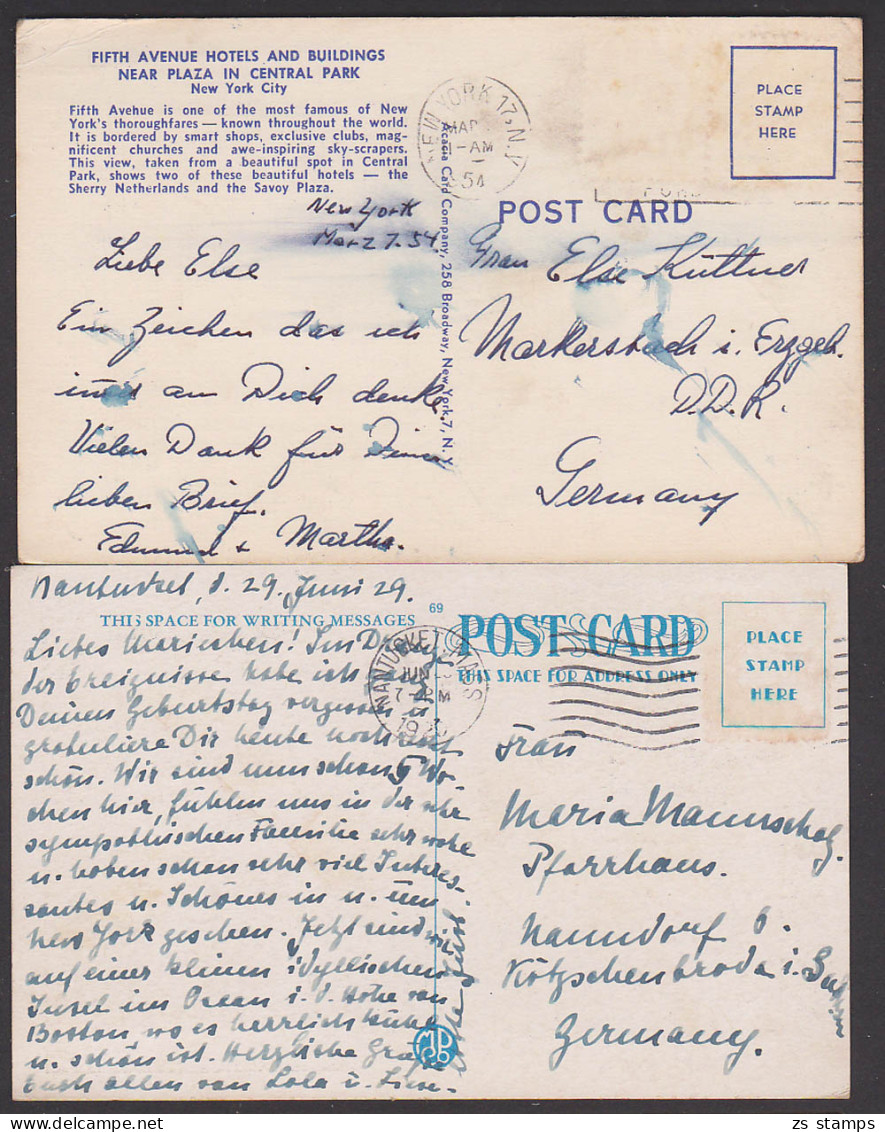 FIFTH AVENUE HOTELS AND BUILDINGS
NEAR PLAZA IN CENTRAL PARK
New York City
Fifth Avenue is one of the most famous of New
York's thoroughfares — known throughout the world.
It is bordered by smart shops, exclusive clubs, mag-
nificent churches and awe-inspiring sky-scrapers.
This view, taken from a beautiful spot in Central
Park, shows two of these beautiful hotels — the
Sherry Netherlands and the Savoy Plaza.
New York
März 7. 54.
Liebe Else
Ein Zeichen das ich
an Dich denke.
Vielen Dank für Deinen
lieben Brief.
Edmund + Martha.
Acacia Card Company, 258 Broadway, New York 7, N.Y.
NEW YORK 17, N.Y.
MAR
1-AM
54
PLACE
STAMP
HERE
POST CARD
Frau Else Küttner
Markersbach i. Erzgeb.
D.D.R.
Germany
Nantucket, d. 29. Juni 29.
THIS SPACE FOR WRITING MESSAGES
69
POST CARD
THIS SPACE FOR ADDRESS ONLY
PLACE
STAMP
HERE
NANTUCKET MASS
JUN
7- PM
19
Liebes Mariechen! Im
der Ereignisse habe ich
Deinen Geburtstag vergessen u.
gratuliere Dir heute noch recht
schön. Wir sind nun schon 5 Wo-
chen hier, fühlen uns in der sehr
sympathischen Familie sehr wohl
u. haben schon sehr viel Interes-
santes u. Schönes in u. um
New York gesehen. Jetzt sind wir
auf einer kleinen idyllischen
Insel im Ocean i. d. Höhe von
Boston, wo es herrlich kühl
u. schön ist. Herzliche Grüße
Euch allen von Lola u. Liese-
Frau
Maria
Pfarrhaus.
Naundorf b.
Kötzschenbroda i. Sachsen
Germany.
zs_stamps